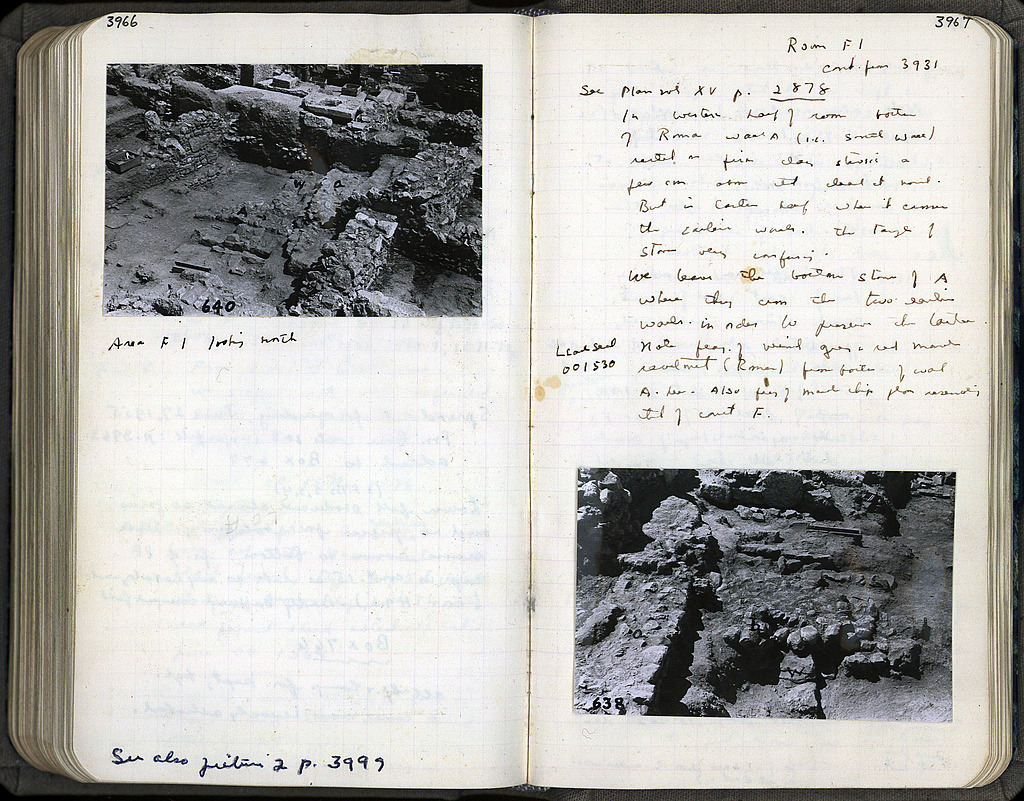 3966
640
Area F 1 looking north
See also picture 2 p. 3999
3967
Room F 1
cont. from 3931
See Plan vol XV p. 2878
In western half of room bottom
of Roman wall A (i.e. South wall)
rested on firm clay stereo a
few cm above
But in Eastern half when it crosses
the earlier walls. The tangle of
stones very confusing.
We leave the bottom stones of A
where they cross the two earlier
walls in order to preserve the latter.
Note frag. of veined green & red marble
revetment (Roman) from bottom of wall
A. Also frags of marble chip floor resembling
that of court F.
Lead Seal
001530
a
b
638